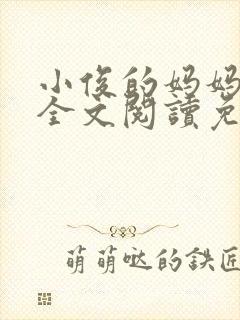 小俊的妈妈
全文閱讀免
萌萌哒的鉄匠